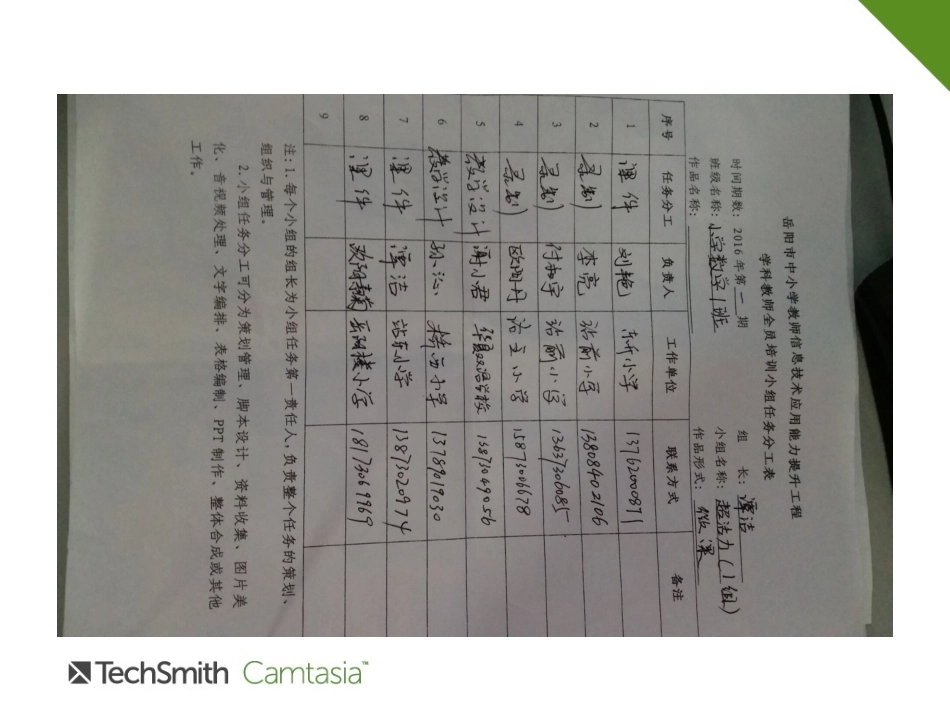 岳阳市中小学教师信息技术应用能力提升工程
学科教师全员培训小组任务分工表
时间期数：2016年第一期 组 长：谭洁
班级名称：小学数学1班 小组名称：超洁力(1组)
作品名称： 作品形式：微课
序号 任务分工 负责人 工作单位 联系方式 备注
1 课件 刘艳 东升小学 13762000871
2 录制 李亮 站前小学 13808402106
3 录制 付 宇 站前小学 13637306085
4 录制 欧阳丹 小学 15873006678
5 教学设计 谢小君 华夏双语学校 15873049056
6 教学设计 孙沁 小学 13789019030
7 课件 谭洁 站东小学 13873020974
8 课件 欧阳 岳阳楼小学 18173069969
9
注：1.每个小组的组长为小组任务第一责任人，负责整个任务的策划、
组织与管理。
2.小组任务分工可分为策划管理、脚本设计、资料收集、图片美
化、音视频处理、文字编排、表格编制、PPT制作、整体合成或其他
工作。
TechSmith Camtasia™